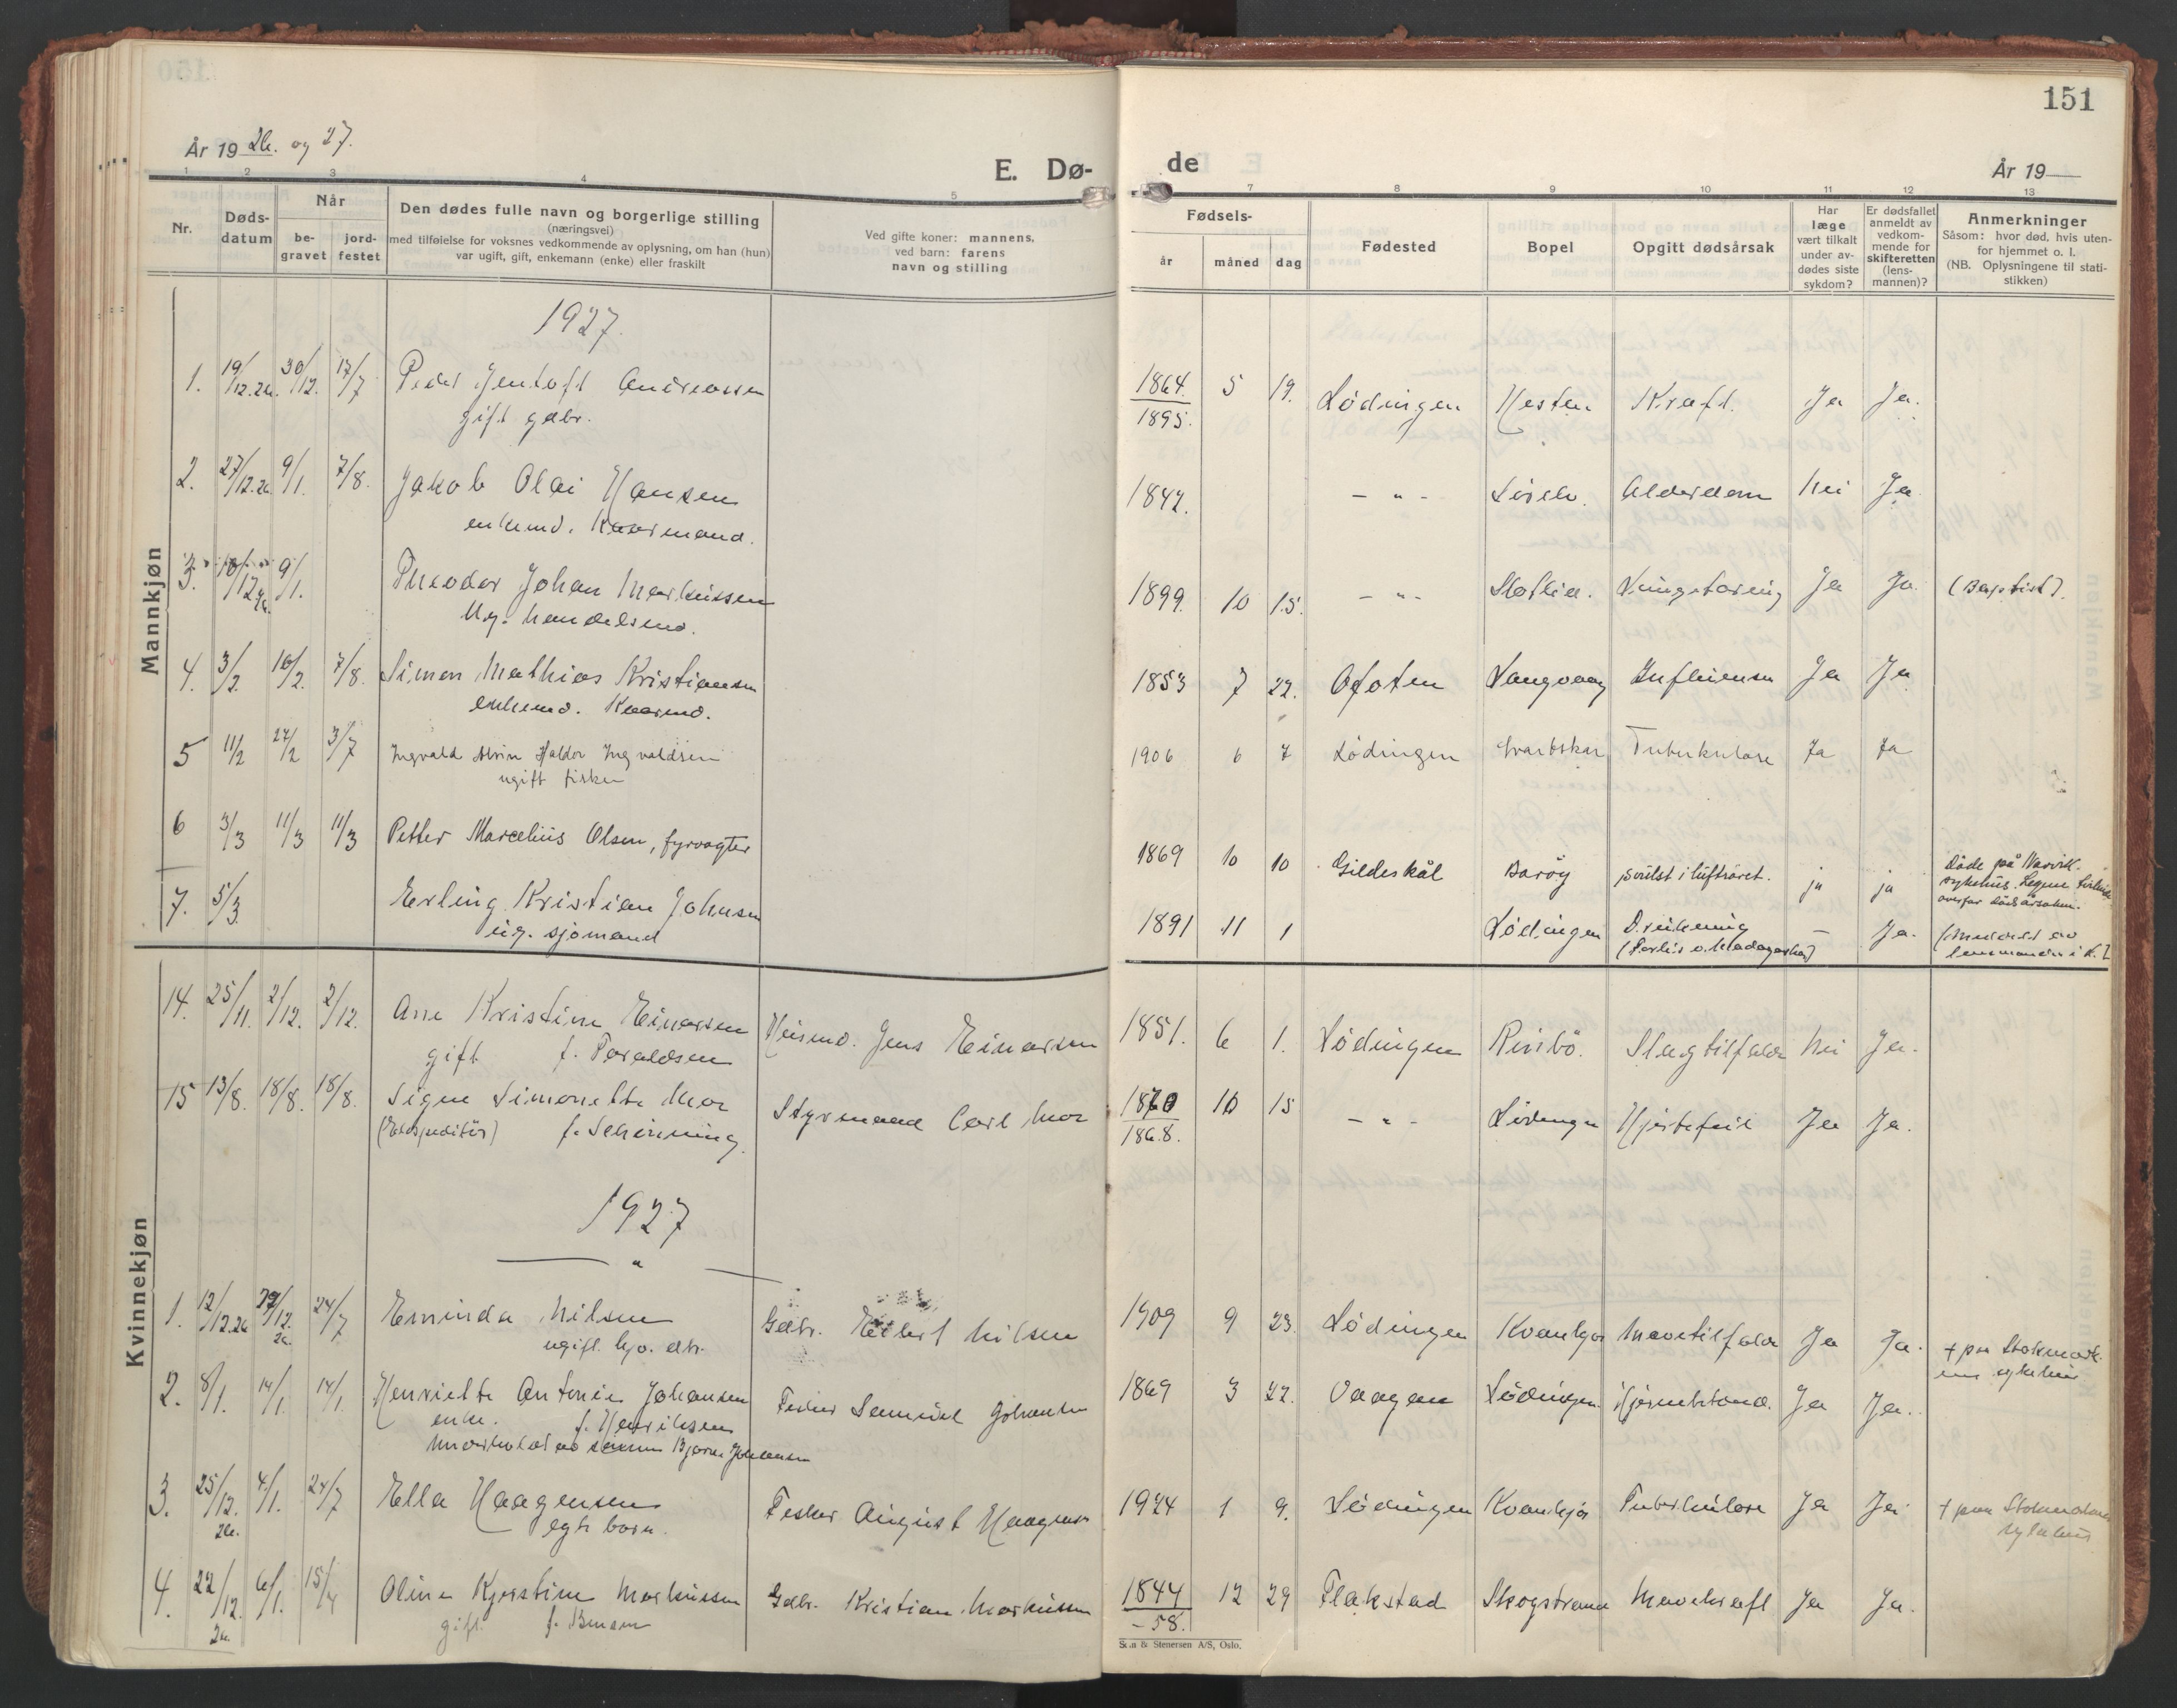 151
År 19 26. og 27.
E. Dø-
de
År 19
1 2 3 4 5 7 8 9 10 11 12 13
Nr.
Døds-
datum
Når
be-
gravet
jord-
festet
Den dødes fulle navn og borgerlige stilling
(næringsvei)
med tilføielse for voksnes vedkommende av oplysning, om han (hun)
var ugift, gift, enkemann (enke) eller fraskilt
Ved gifte koner: mannens,
ved barn: farens
navn og stilling
Fødsels-
år måned dag
Fødested
Bopel
Opgitt dødsårsak
Har
læge
vært tilkalt
under av-
dødes siste
sykdom?
Er dødsfallet
anmeldt av
vedkom-
mende for
skifteretten
(lens-
mannen)?
Anmerkninger
Såsom: hvor død, hvis uten-
for hjemmet o. l.
(NB. Oplysningene til stati-
stikken)
Mannkjøn
1927.
1. 19/12.26. 30/12. 17/7 Peder Jentoft Andreassen 1864. 5 19. Lødingen Hesten Kreft. Ja Ja.
gift gdbr. 1895.
2. 27/12.26. 9/1. 7/8. Jakob Olai Hansen 1842. - " - Alderdom Nei Ja
enkemd. Kaarmand.
3. 9/1. Theodor Johan Markussen 1899. 10 15. - " - Ja Ja. (Baptist).
Ug. handelsmd.
4. 3/2. 16/2. 7/8. Simon Mathias Kristiansen 1853 7 22. Ofoten Vaagvaag Influensa Ja Ja
enkemd. Kaarmd.
5 11/2 27/2 3/7 Ingvald Alvin Haldor Ingvaldsen 1906 6 7 Lødingen Svartskar Tuberkulose Ja Ja
ugift fisker
6 3/3 11/3 11/3 Petter Marcelius Olsen, fyrvogter 1869 10 10 Gildeskål Barøy svulst i luftrøret. ja ja
Døde på Narvik
sykehus. Legen
overfor dødsårsaken.
7. 5/3 Erling Kristian Johnsen 1891 11 1 Lødingen Drukning - Ja.
ug. sjømand (Forlis v. Madagaskar)
Kvinnekjøn
14. 25/11. 2/12. 2/12. Ane Kristine Einarsen Husmd. Jens Einarsen 1851. 6 1. Lødingen Rinbø. Slagtilfælde Nei Ja.
gift f. Toraldsen
15 13/8. 18/8. 18/8. Signe Simonette Moe Styrmand Carl Moe 1860 10 15 - " - Lødingen Hjertefeil Ja Ja.
(Ekspeditør) f. Schønning. 1868.
1927
1. 12/12.26 24/7 Eminda Nilsen Gdbr. Edvart Nilsen 1909 9 23. Lødingen Mavetilfælde Ja Ja.
ugift hjv. dtr.
+ paa Stokmark-
nes sykehus
2. 8/1. 14/1. 14/1. Henriette Antonie Johansen Fisker Samuel Johansen 1869 3 22. Vaagan Lødingen. Ja Ja.
enke. f. Henriksen
Underholdt av sønnen Bjarne Johansen
3. 25/12. 26. 4/1. 24/7 Ella Haagensen Fisker August Haagensen 1924 1 9. Lødingen Tuberkulose Ja Ja
egte barn.
+ paa Stokmarknes
sykehus
4. 22/12. 26. 6/1. Oline Kjerstine Markussen Gdbr. Kristian Markussen 1844 12 29 Flakstad Skogstrand Mavekreft Ja Ja.
gift f. -58.
Sem & Stenersen A/S, Oslo.